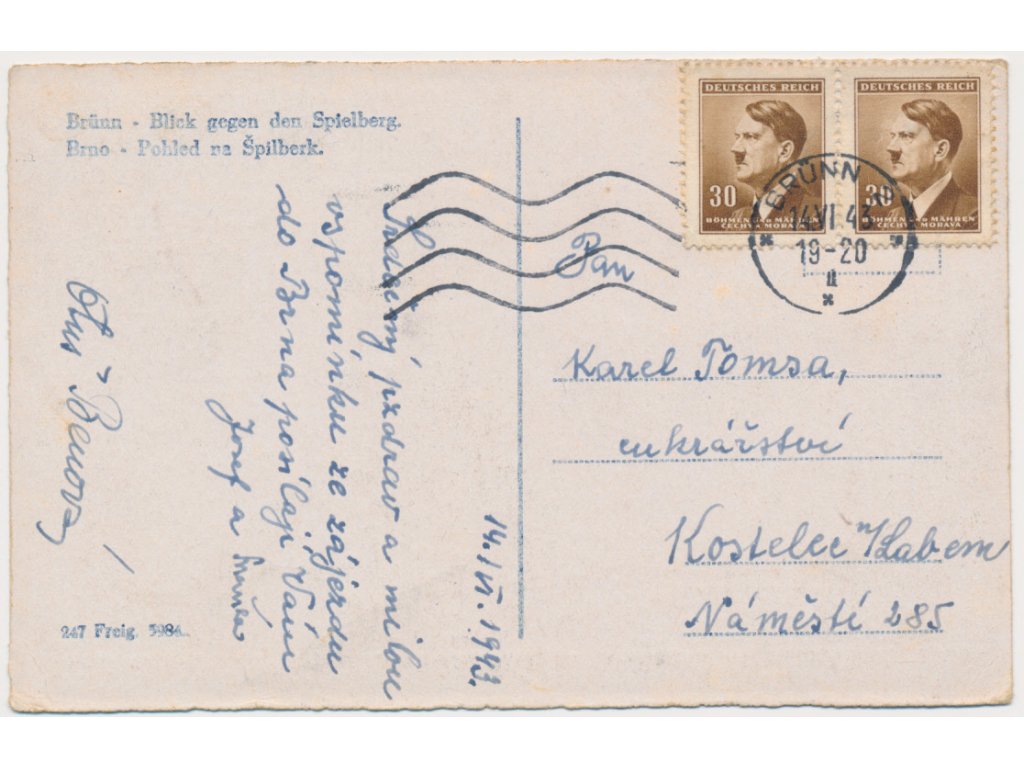 Brünn - Blick gegen den Spielberg.
Brno - Pohled na Špilberk.
Srdečný pzdrav a milou
vspomínku ze zájezdu
do Brna posílají Vám
Josef a
14./VI. 1943.
247 Freig. 5984.
DEUTSCHES REICH
30
BÖHMEN u. MÄHREN
ČECHY a MORAVA
DEUTSCHES REICH
30
BÖHMEN u. MÄHREN
ČECHY a MORAVA
BRÜNN 2
14.VI.43
19-20
Pan
Karel Tomsa,
cukrářství
Kostelec n/Labem
Náměstí 285